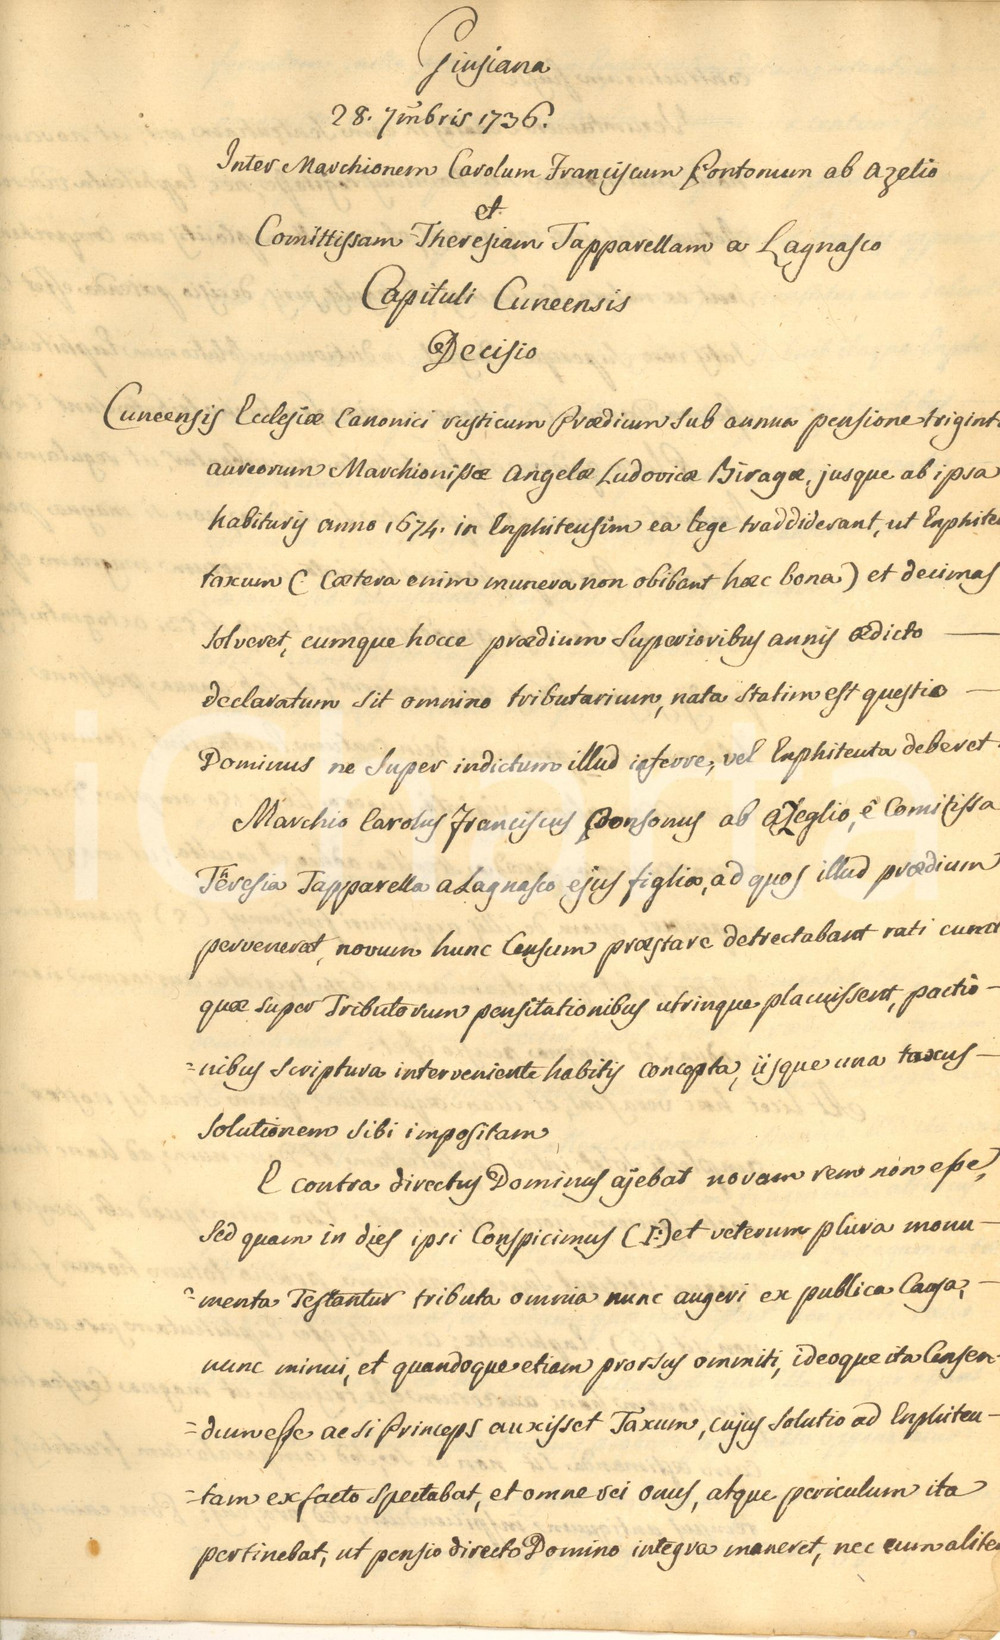 Giusiana
28. 7mbris 1736.
Inter Marchionem Carolum Franciscum Pontonum ab Azelio
et
Comittissam Theresiam Tapparellam a Lagnasco
Capituli Cuneensis
Decisio
Cuneensis Ecclesiæ Canonici rusticum Prædium sub annua pensione trigint
aureorum Marchionissæ Angelæ Ludovicæ Biragæ, jusque ab ipsa
habituris anno 1674. in Enphiteusim ea lege traddiderant, ut Enphite
taxum (: Cætera enim munera non obibant hæc bona) et decimas
solveret, cumque hocce prædium superioribus annis ædicto —
declaratum sit omnino tributarium, nata statim est questio —
Dominus ne super indictum illud inferre, vel Enphiteuta deberet.
Marchio Carolus Franciscus Ponsonus ab Azeglio, é Comitissa
Theresia Tapparella a Lagnasco ejus figlia, ad quos illud prædium
pervenerat, novum hunc Censum præstare detrectabant rati cunct
quæ super Tributorum pensitationibus utrinque placuissent, pactio-
=nibus scriptura interveniente habitis concepta, iisque una taxus —
solutionem sibi impositam
E contra directus Dominus ajebat novam rem non esse,
sed quam in dies ipsi Conspicimus (I:) et veterum plura monu-
=menta Testantur tributa omnia nunc augeri ex publica Causa, —
nunc minui, et quandoque etiam prorsus ommiti, ideoque ita Censen-
=dum esse ac si Princeps auxisset Taxum, cujus solutio ad Enphiteu-
=tam ex facto spectabat, et omne rei onus, atque periculum ita
pertinebat, ut pensio directo Domino integra maneret, nec cum alite
iChor